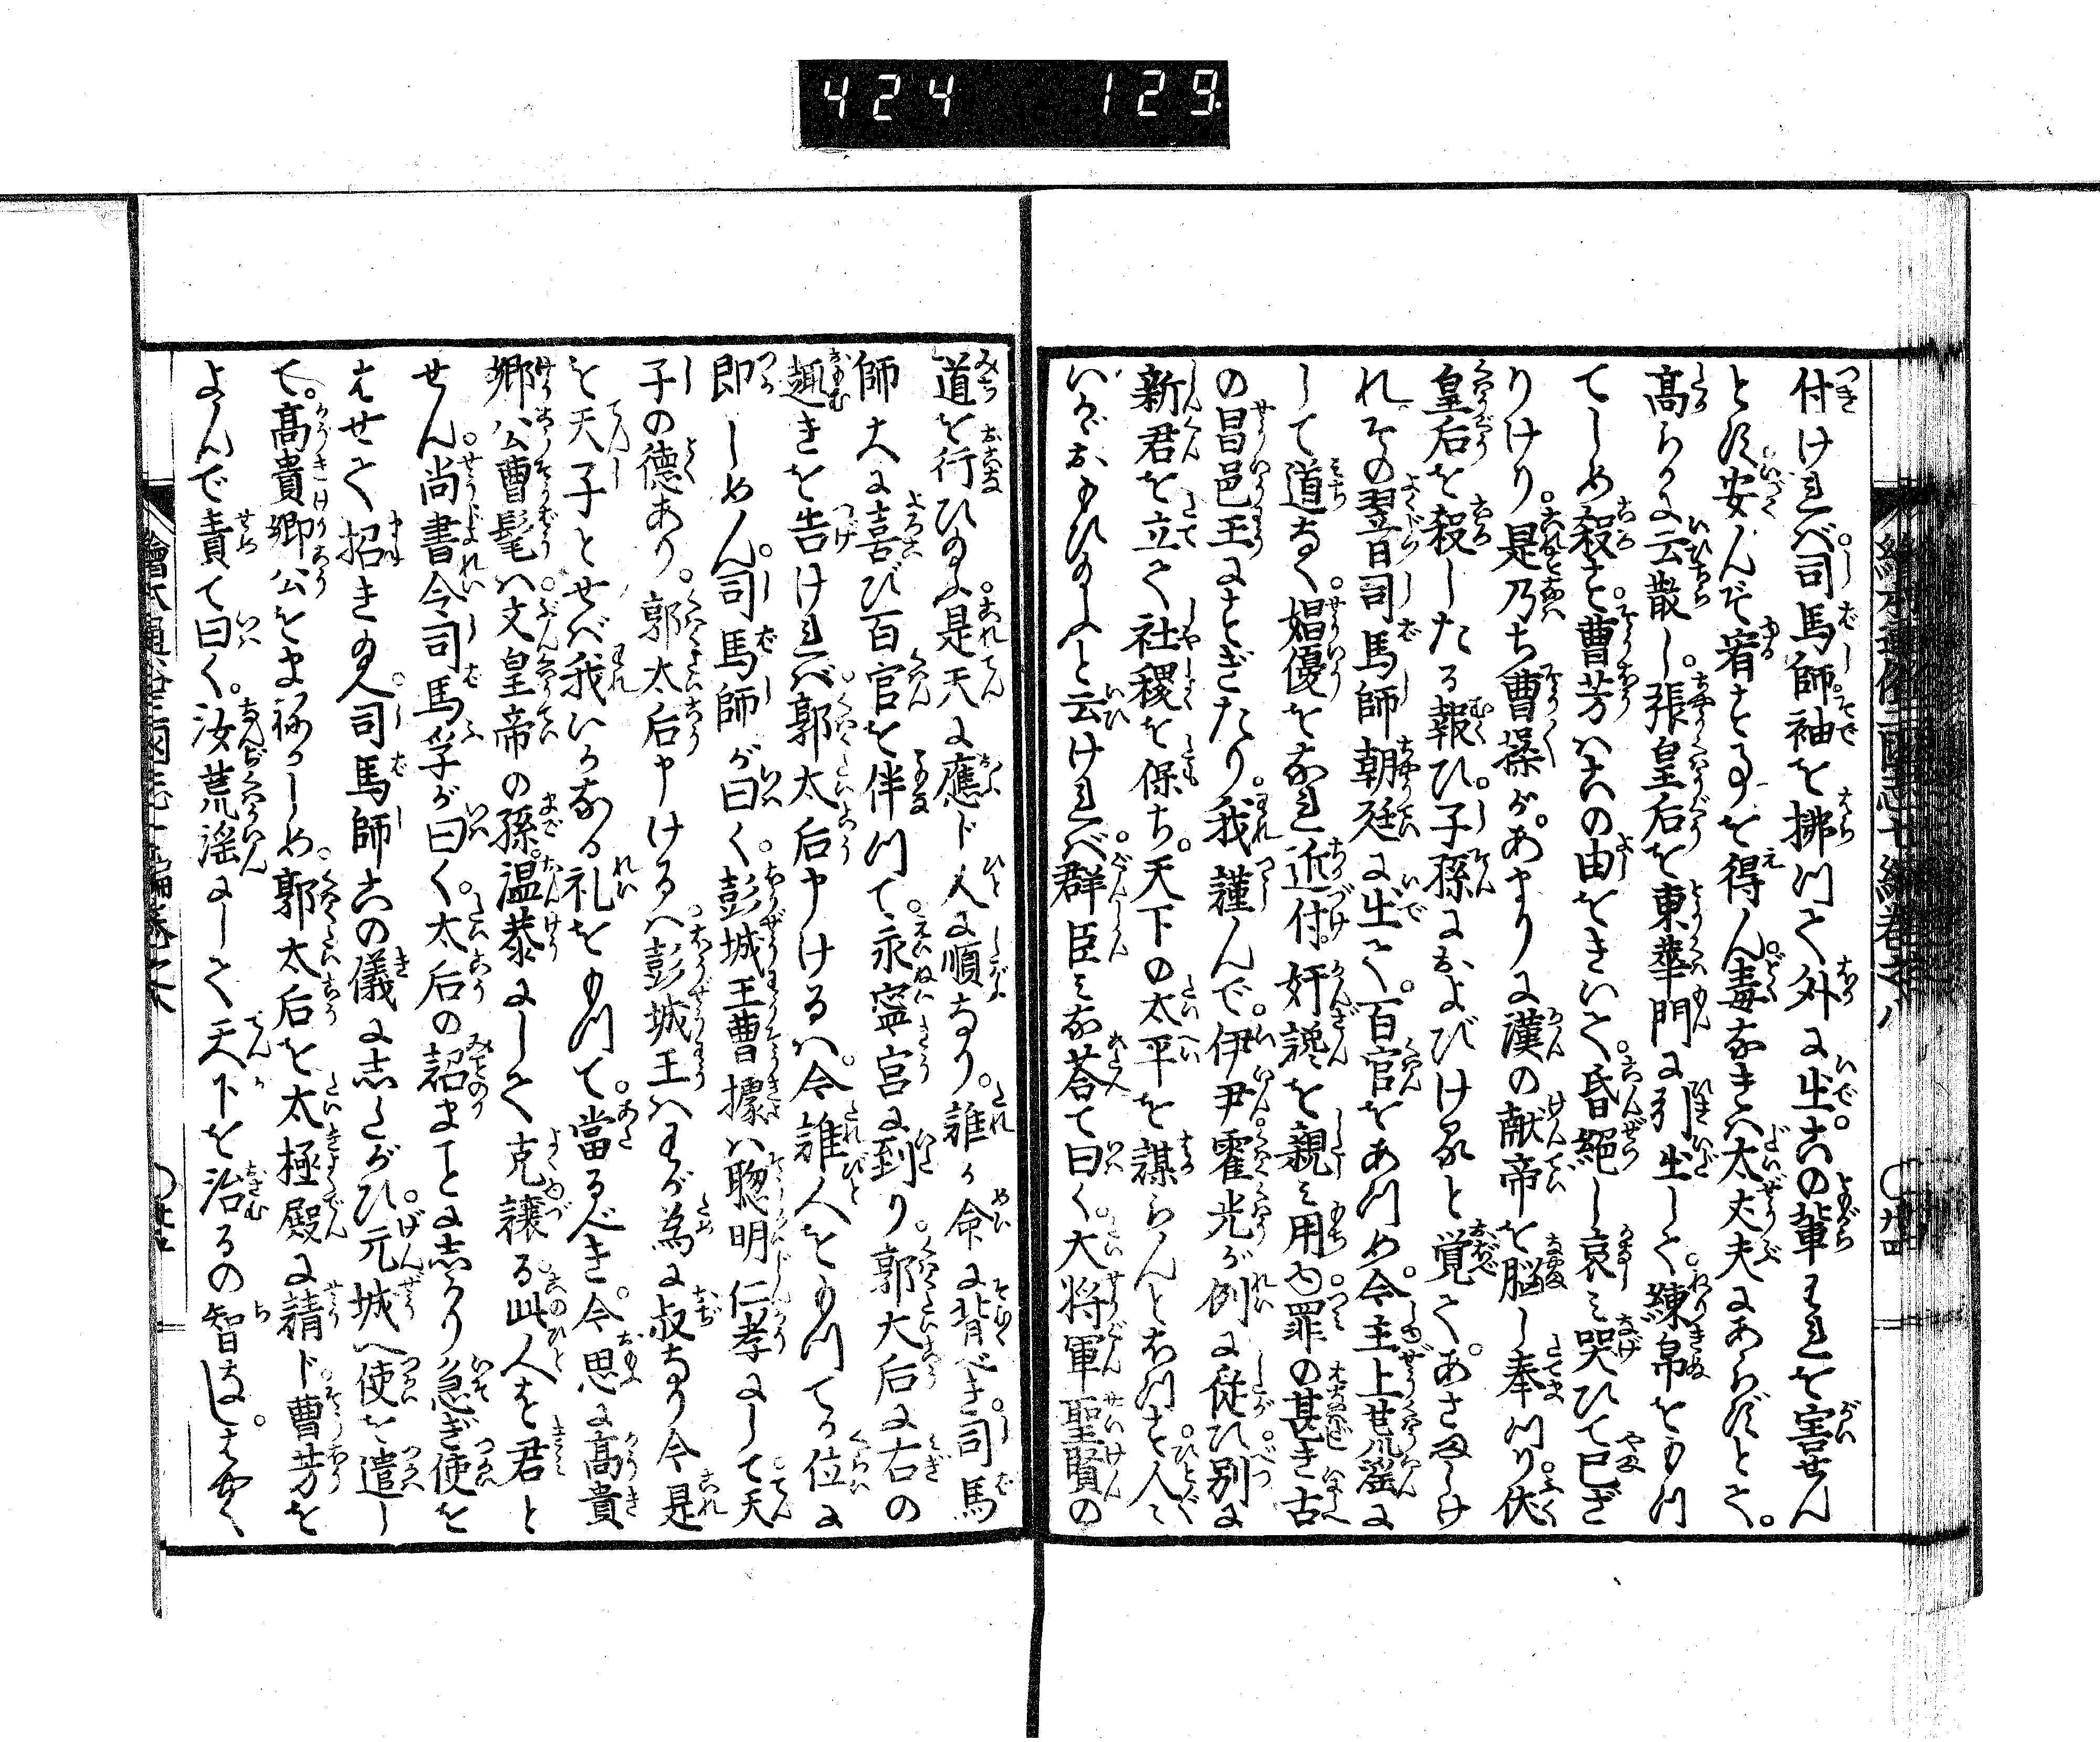 424 129
付ければ司馬師袖を拂つて外に出この輩われを害せん
とす安んぞ宥すことを得ん毒なきハ大丈夫にあらずとて。
高らかに云散し。張皇后を東華門に引出して。練帛をもつ
てしめ殺す。曹芳ハこの由をきいて。昏絶し哀み哭ひて已ざ
りけり。是乃ち曹操があまりに漢の献帝を脳し奉つり伏
皇后を殺したる報ひ。子孫におよびけると覚て。あさましけ
れ。その翌日司馬師朝廷に出て。百官をあつめ。今主上荒淫に
して道なく。娼優をなれ近付。奸讒を親み用ゆ。罪の甚き古
の昌邑王にすぎたり。我謹んで。伊尹霍光が例に従ひ。別に
新君を立て社稷を保ち。天下の太平を謀らんとおもつす。人〻
いかゞおもひ給ふと云ければ。群臣みな荅て曰く。大将軍聖賢の
道を行ひ給ふ。是天に應ド人に順なり。誰か命に背べき。司馬
師大に喜び百官を伴つて。永寧宮に到り。郭大后に右の
趣きを告ければ。郭太后申けるハ。今誰人をもつてか位に
即しめん。司馬師が曰く。彭城王曹據ハ聡明仁孝にして。天
子の徳あり。郭太后申けるハ。彭城王ハわが為に叔なり今是
を天子とせば我いかなる礼をもつて。當るべき。今思に高貴
郷公曹髦ハ文皇帝の孫。温恭にして克譲る。此人を君と
せん。尚書令司馬孚が曰く。太后の詔まことに志かり急ぎ使を
はせて招き給へ。司馬師この儀に志たがひ。元城へ使を遣し
て。高貴郷公をまねかしめ。郭太后を太極殿に請ド。曹芳を
よんで責て曰く。汝荒淫にして天下を治るの智なし。はやく